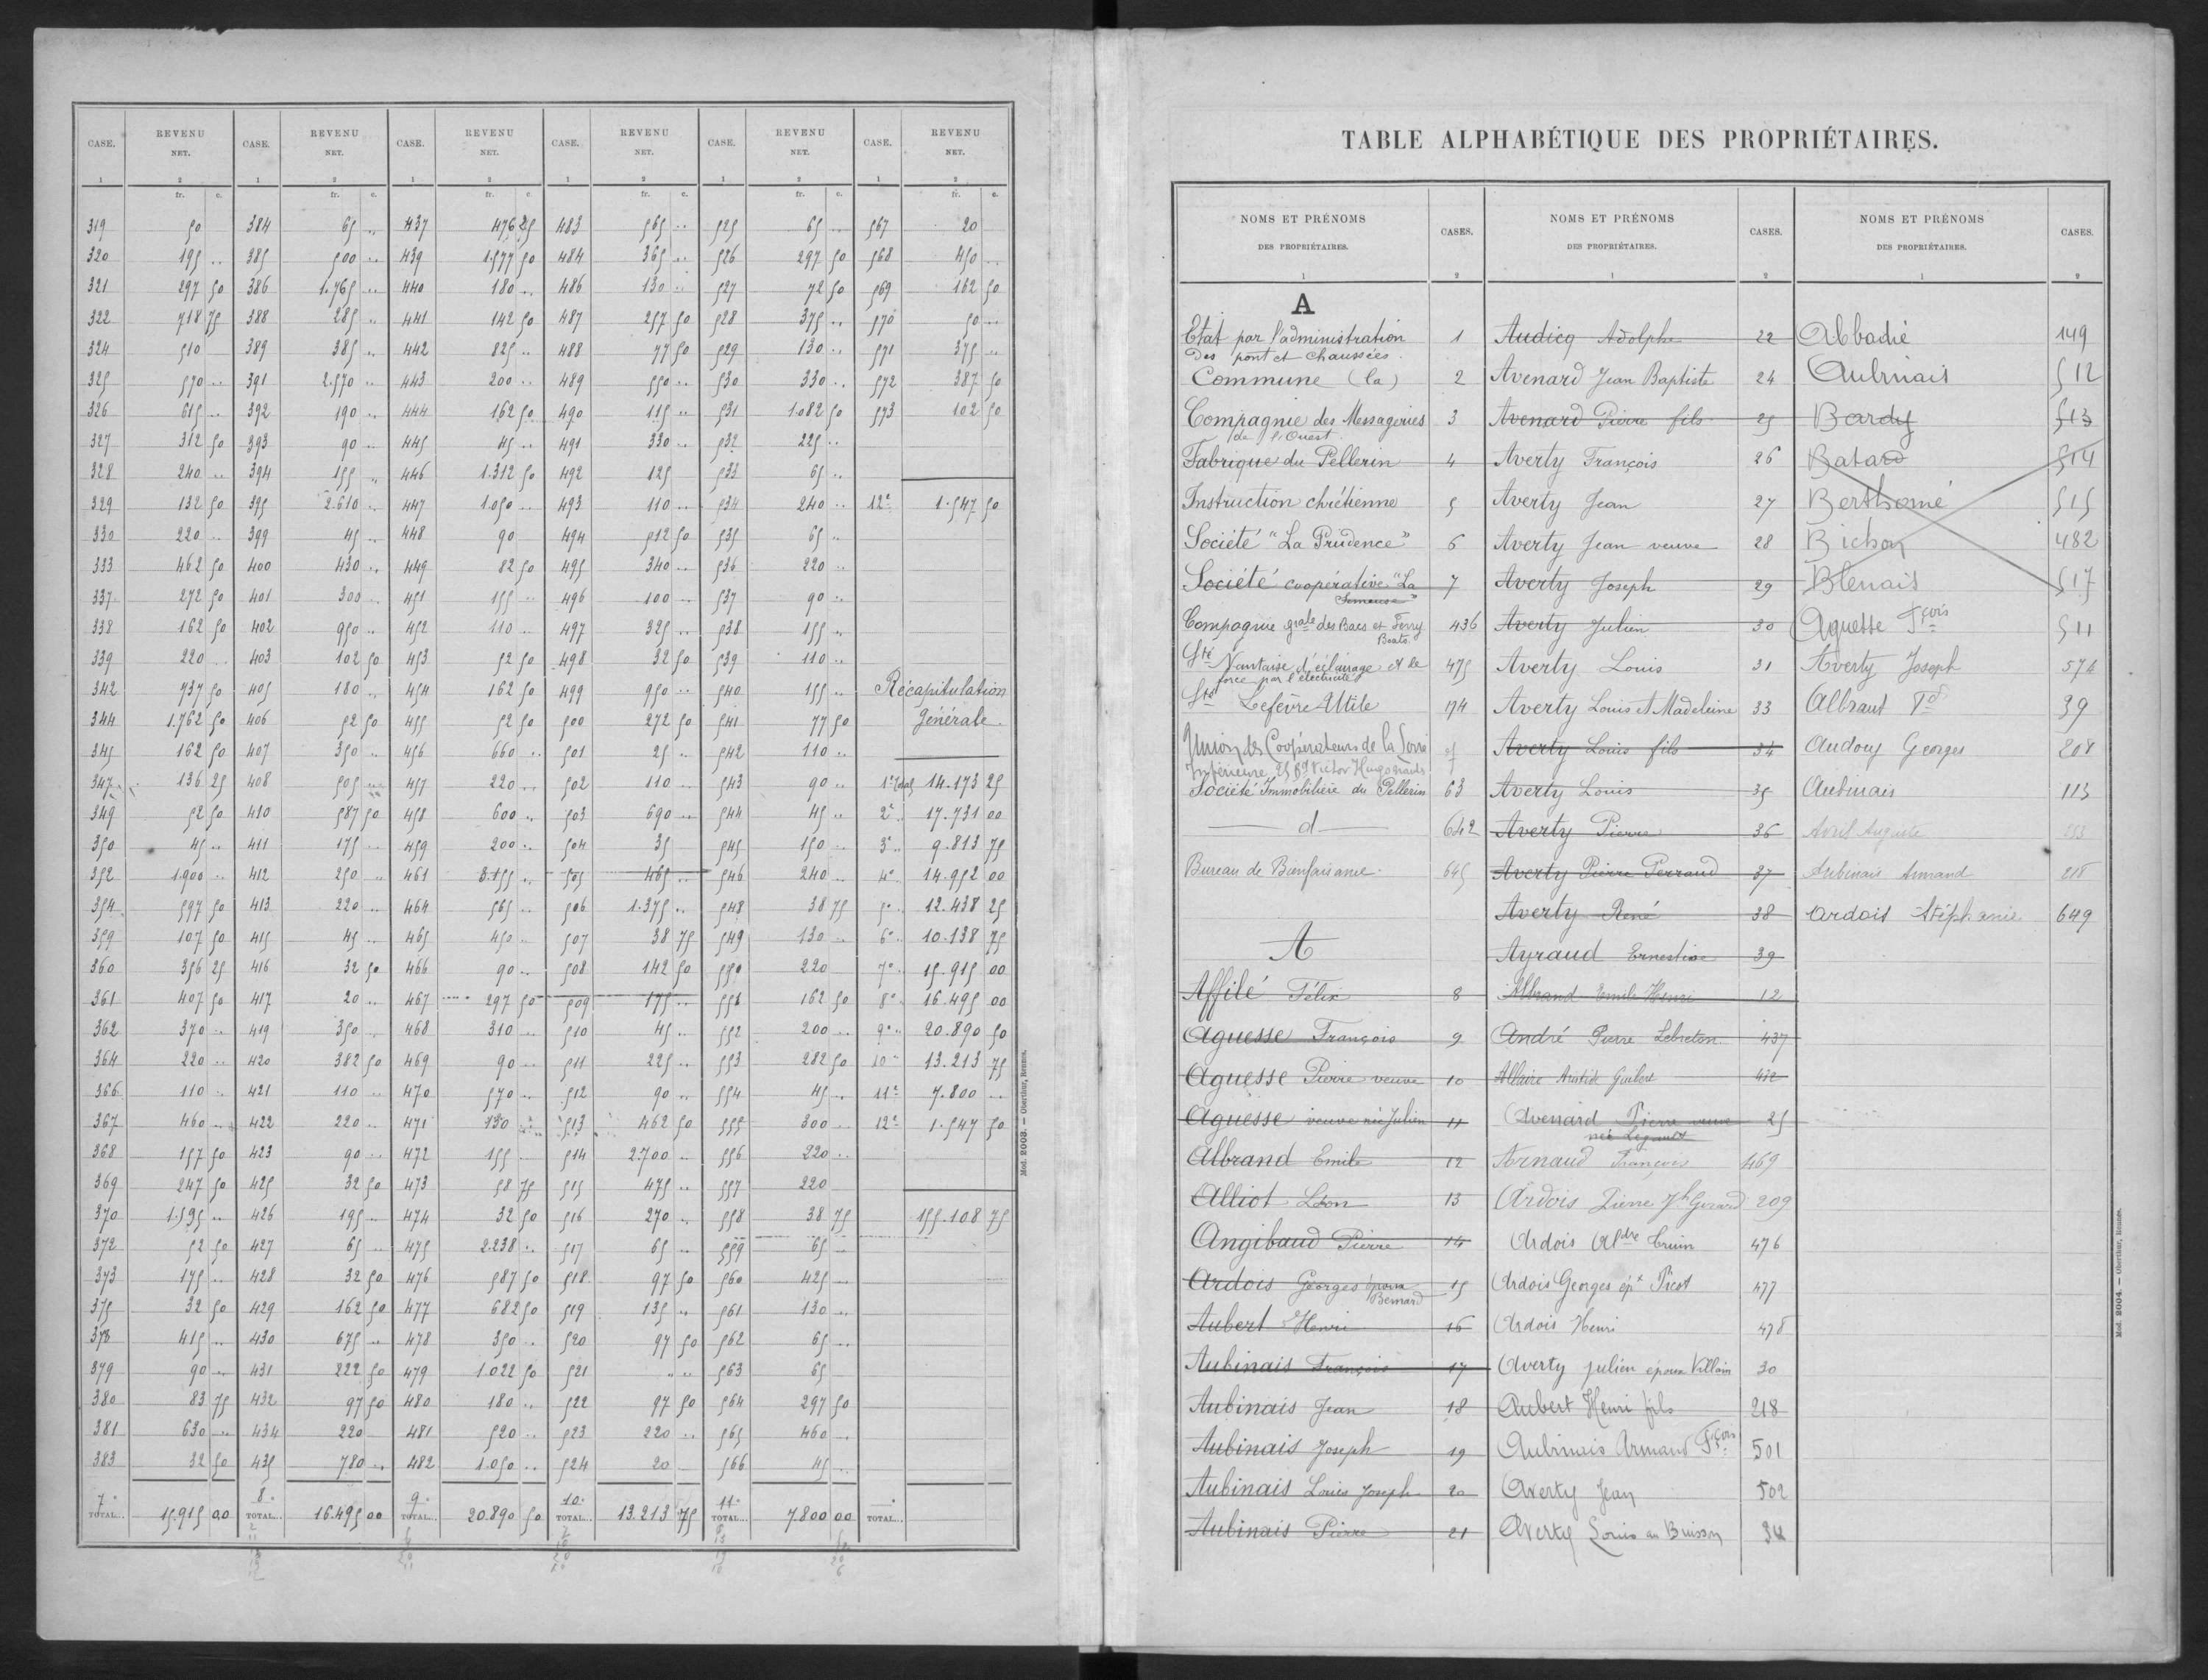 CASE. REVENU NET. CASE. REVENU NET. CASE. REVENU NET. CASE. REVENU NET. CASE. REVENU NET. CASE. REVENU NET.
1 2 1 2 1 2 1 2 1 2 1 2
fr. c. fr. c. fr. c. fr. c. fr. c. fr. c.
319 50 384 65 .. 437 476 25 483 565 .. 525 65 .. 567 20
320 195 .. 385 500 .. 439 1.577 50 484 365 .. 526 297 50 568 450 ..
321 297 50 386 1.765 .. 440 180 .. 486 130 .. 527 72 50 569 162 50
322 718 75 388 285 .. 441 142 50 487 257 50 528 375 .. 570 50 ..
324 510 389 385 .. 442 825 .. 488 77 50 529 130 .. 571 375 ..
325 570 .. 391 2.570 .. 443 200 .. 489 550 .. 530 330 .. 572 387 50
326 615 .. 392 190 .. 444 162 50 490 115 .. 531 1.082 50 573 102 50
327 312 50 393 90 .. 445 45 .. 491 330 .. 532 225 ..
328 240 .. 394 155 .. 446 1.312 50 492 125 533 65 ..
329 132 50 395 2.610 .. 447 1.050 .. 493 110 .. 534 240 .. 12e 1.547 50
330 220 .. 399 45 .. 448 90 494 512 50 535 65 ..
333 462 50 400 430 .. 449 82 50 495 340 .. 536 220 ..
337 272 50 401 300 .. 451 155 .. 496 100 .. 537 90 ..
338 162 50 402 950 .. 452 110 .. 497 325 .. 538 155 ..
339 220 .. 403 102 50 453 52 50 498 32 50 539 110 ..
342 737 50 405 180 .. 454 162 50 499 950 .. 540 155 .. Récapitulation
344 1.762 50 406 52 50 455 52 50 500 272 50 541 77 50 Générale.
345 162 50 407 350 .. 456 660 .. 501 25 .. 542 110 ..
347 136 25 408 505 .. 457 220 .. 502 110 .. 543 90 .. 1e Total 14.173 25
349 52 50 410 587 50 458 600 .. 503 690 .. 544 45 .. 2e 17.731 00
350 45 .. 411 175 .. 459 200 .. 504 35 545 150 .. 3e 9.813 75
352 1.900 .. 412 250 .. 461 3.155 .. 505 465 .. 546 240 .. 4e 14.952 00
354 597 50 413 220 .. 464 565 .. 506 1.375 .. 548 38 75 5e 12.438 25
359 107 50 415 45 .. 465 450 .. 507 38 75 549 130 .. 6e 10.138 75
360 356 25 416 32 50 466 90 .. 508 142 50 550 220 7e 15.915 00
361 407 50 417 20 .. 467 297 50 509 175 .. 551 162 50 8e 16.495 00
362 370 .. 419 350 .. 468 310 .. 510 45 .. 552 200 .. 9e 20.890 50
364 220 .. 420 382 50 469 90 .. 511 225 .. 553 282 50 10e 13.213 75
366 110 .. 421 110 .. 470 570 .. 512 90 .. 554 45 .. 11e 7.800 ..
367 460 .. 422 220 .. 471 130 .. 513 462 50 555 300 .. 12e 1.547 50
368 157 50 423 90 .. 472 155 .. 514 2.700 .. 556 220 ..
369 247 50 425 32 50 473 58 75 515 475 .. 557 220
370 1.595 .. 426 195 .. 474 32 50 516 270 .. 558 38 75 155.108 75
372 52 50 427 65 .. 475 2.238 .. 517 65 .. 559 65 ..
373 175 .. 428 32 50 476 587 50 518 97 50 560 425 ..
375 32 50 429 162 50 477 682 50 519 135 .. 561 130 ..
378 415 .. 430 675 .. 478 350 .. 520 97 50 562 65 ..
379 90 .. 431 822 50 479 1.022 50 521 .. .. 563 65
380 83 75 432 97 50 480 180 .. 522 97 50 564 297 50
381 630 .. 434 220 481 520 .. 523 220 .. 565 460 ..
383 32 50 435 780 .. 482 1.050 .. 524 20 566 45 ..
7e TOTAL... 15.915 00 8e TOTAL... 16.495 00 9e TOTAL... 20.890 50 10e TOTAL... 13.213 75 11e TOTAL... 7.800 00 TOTAL...
Mod. 2003. — Oberthur, Rennes.
TABLE ALPHABÉTIQUE DES PROPRIÉTAIRES.
NOMS ET PRÉNOMS DES PROPRIÉTAIRES. CASES. NOMS ET PRÉNOMS DES PROPRIÉTAIRES. CASES. NOMS ET PRÉNOMS DES PROPRIÉTAIRES. CASES.
1 2 1 2 1 2
A
Etat par l'administration 1
des pont et chaussées.
Commune (la) 2
Compagnie des Messageries 3
de l'Ouest
Fabrique du Pellerin 4
Instruction chrétienne 5
Société "La Prudence" 6
Société coopérative "La 7
Semeuse"
Compagnie grale des Bacs et Ferry 436
Boats.
Sté Nantaise d'éclairage et de 475
force par l'électricité
Sté Lefèvre Utile 174
Union des Coopérateurs de la Loire
Inférieure, 25 Bd Victor Hugo Nantes
Société Immobilière du Pellerin 63
d 642
Bureau de Bienfaisance. 645
A
Affilé Félix 8
Aguesse François 9
Aguesse Pierre veuve 10
Aguesse veuve née Julien 11
Albrand Emile 12
Alliot Léon 13
Angibaud Pierre 14
Ardois Georges époux 15
Bernard
Aubert Henri 16
Aubinais François 17
Aubinais Jean 18
Aubinais Joseph 19
Aubinais Louis Joseph 20
Aubinais Pierre 21
Audicq Adolphe 22
Avenard Jean Baptiste 24
Avenard Pierre fils 25
Averty François 26
Averty Jean 27
Averty Jean veuve 28
Averty Joseph 29
Averty Julien 30
Averty Louis 31
Averty Louis et Madeleine 33
Averty Louis fils 34
Averty Louis 35
Averty Pierre 36
Averty Pierre Perraud 37
Averty René 38
Ayraud Ernestine 39
Albrand Emile Henri 12
André Pierre Lebreton 437
Allaire Aristide Guibert 432
Avenard Pierre veuve 25
née Legault
Arnaud François 469
Ardois Pierre Jh Girard 209
Ardois Aldre 476
Ardois Georges épx Picot 477
Ardois Henri 478
Averty julien époux Villain 30
Aubert Henri fils 218
Aubinais Armand Fçois 501
Averty Jean 502
Averty Louis au Buisson 34
Abbadie 149
Aubinais 512
Bardy 513
Batard 514
Berthomé 515
Bichon 482
Blenais 517
Aguesse Fçois 511
Averty Joseph 574
Albraut 39
Audouy Georges 208
Aubinais 113
Avril Auguste 253
Aubinais Armand 218
Ardois Stéphanie 649
Mod. 2004. — Oberthur, Rennes.